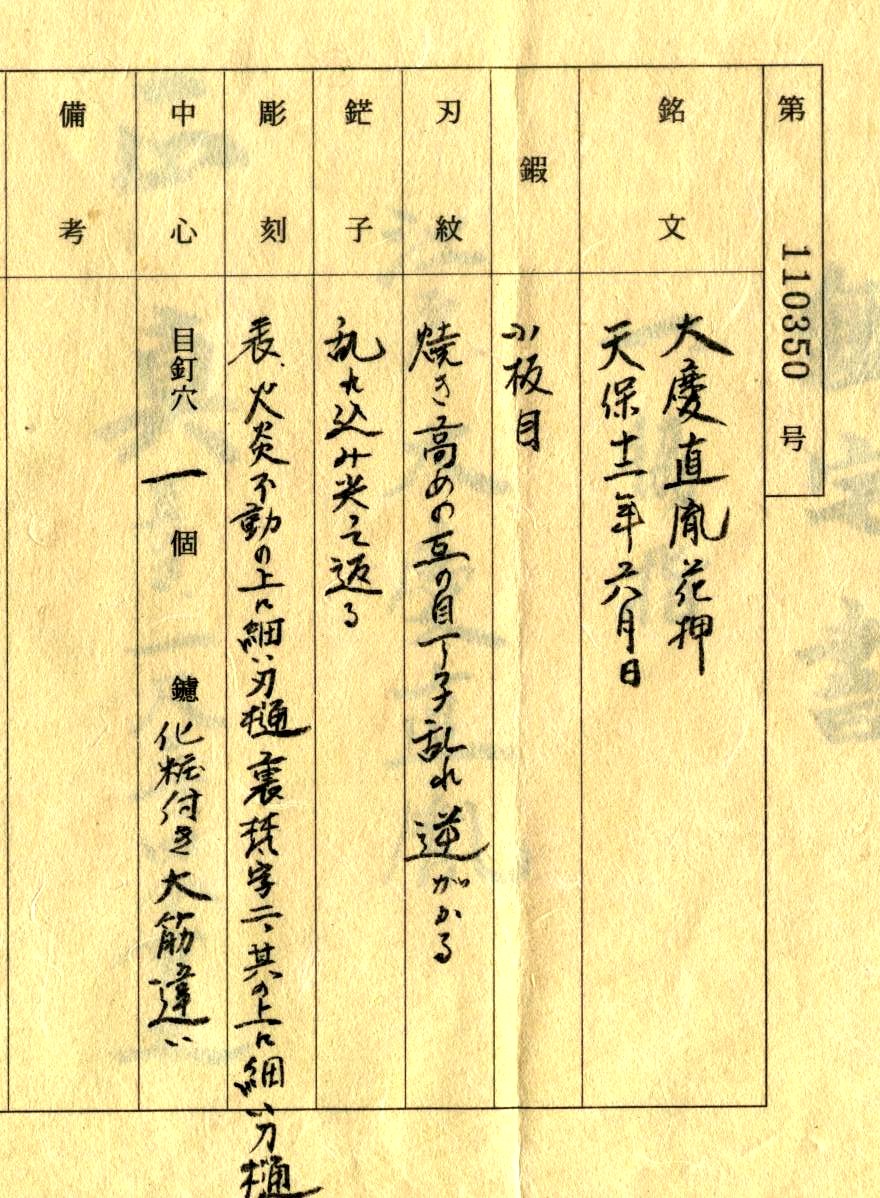 第 110350 号
銘文
大慶直胤花押
天保十三年六月日
鍜
小板目
刃紋
焼き高めの互の目丁子乱れ逆がかる
鋩子
乱れ込み尖って返る
彫刻
表、火炎不動の上に細い刃樋 裏梵字二、其の上に細い刀樋
中心
目釘穴 一 個 鑢 化粧付き大筋違い
備考